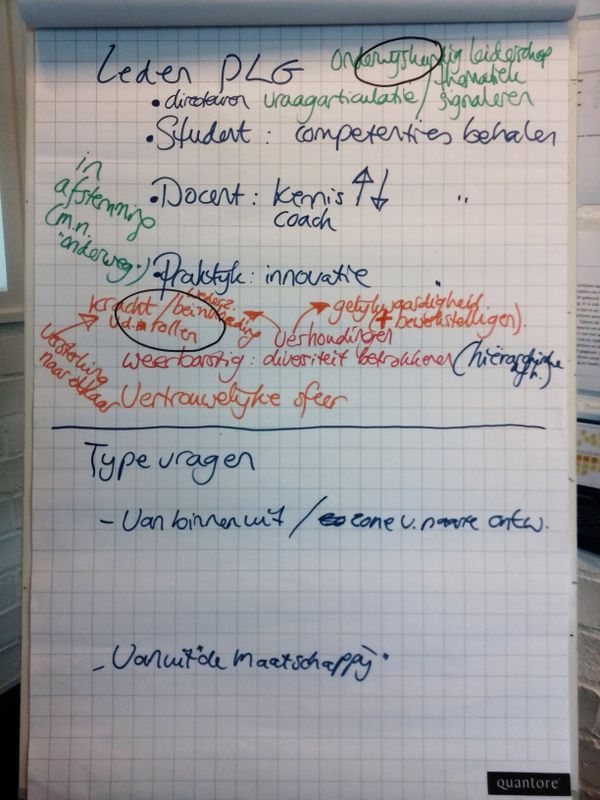 Leden PLG
onderwijskundig leiderschap
• directeuren vraagarticulatie / thematiek signaleren
• Student : competenties behalen
in afstemming (m.n. "onderweg")
• Docent : kennis ↑↓ "
coach
• Praktijk : innovatie
kracht / beïnvloeding
v.d. rollen
verhoudingen
gelijkwaardigheid
+ bewerkstelligen).
Versterking naar elkaar
weerbarstig : diversiteit betrokkenen (hiërarchische afh.)
Vertrouwelijke sfeer
Type vragen
- Van binnenuit / zone v. naaste ontw.
- Vanuit "de maatschappij"
quantore